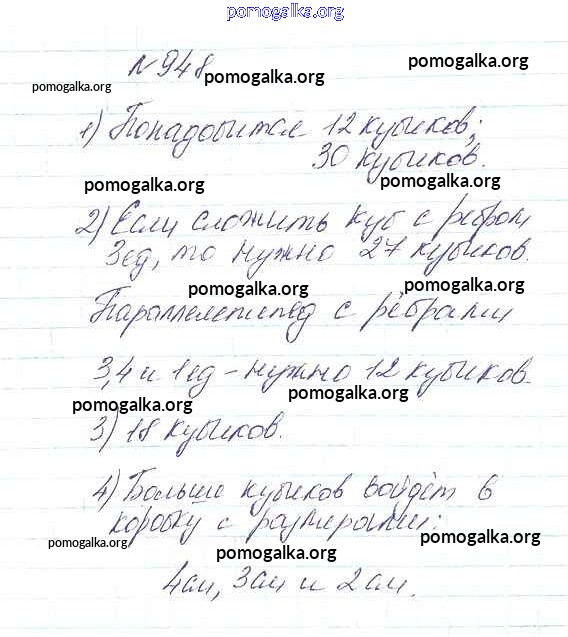 pomogalka.org
№948
pomogalka.org
pomogalka.org
pomogalka.org
1) Понадобится 12 кубиков;
30 кубиков.
pomogalka.org
pomogalka.org
2) Если сложить куб с ребром
3ед, то нужно 27 кубиков.
pomogalka.org
pomogalka.org
Параллелепипед с рёбрами
3,4 и 1ед - нужно 12 кубиков.
pomogalka.org
pomogalka.org
3) 18 кубиков.
4) Больше кубиков войдёт в
коробку с размерами:
pomogalka.org
pomogalka.org
pomogalka.org
4см, 3см и 2см.